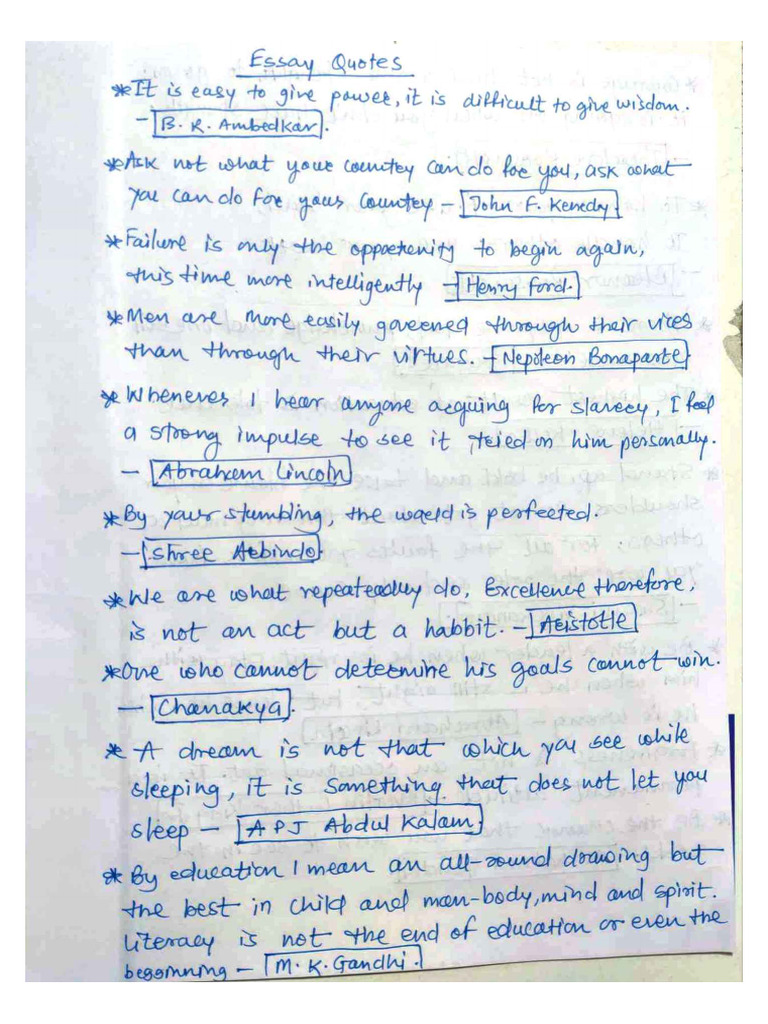 Essay Quotes
* It is easy to give power, it is difficult to give wisdom.
- B. R. Ambedkar.
* Ask not what your country can do for you, ask what
you can do for your country - John F. Kenedy
* Failure is only the opportunity to begin again,
this time more intelligently - Henry Ford.
* Men are more easily governed through their vices
than through their virtues. - Nepoleon Bonaparte
* Whenever I hear anyone arguing for slavery, I feel
a strong impulse to see it tried on him personally.
- Abrahem Lincoln
* By your stumbling, the world is perfected.
- Shree Aobindo
* We are what repeateadly do, Excellence therefore,
is not an act but a habbit. - Aristotle
* One who cannot determine his goals cannot win.
- Chanakya.
* A dream is not that which you see while
sleeping, it is something that does not let you
sleep - APJ Abdul Kalam.
* By education I mean an all-round drawing but
the best in child and man-body, mind and spirit.
literacy is not the end of education or even the
beginning - M. K. Gandhi.